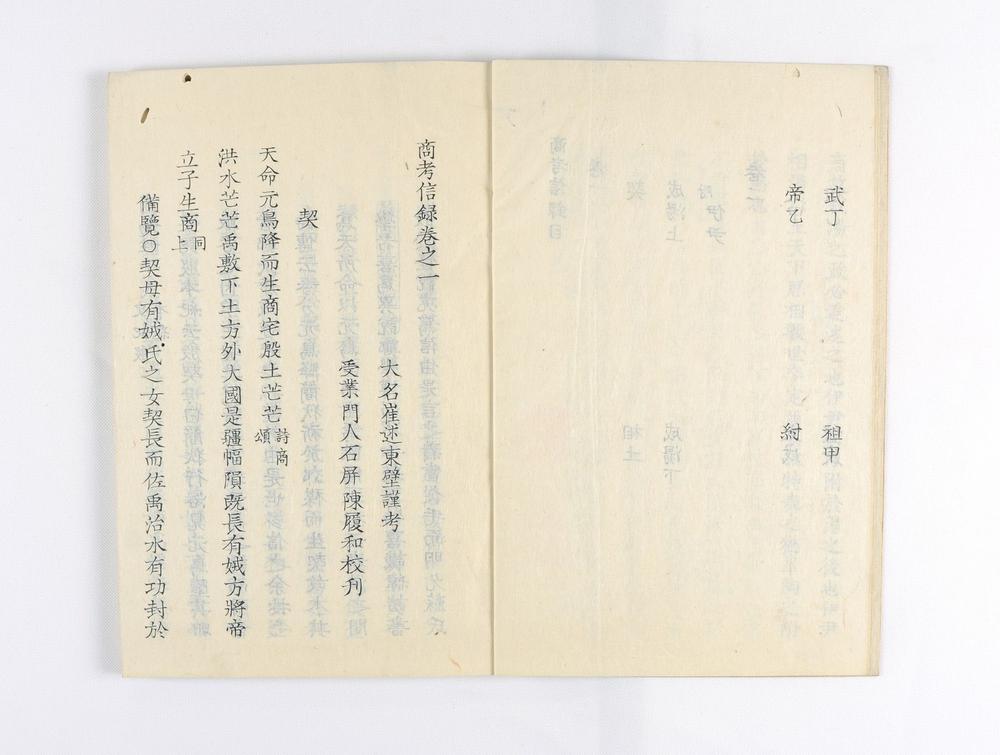 武丁 祖甲
帝乙 紂
商考信録卷之一
大名崔述東壁謹考
受業門人石屏陳履和校刋
契
天命元鳥降而生商宅殷土芒芒詩商頌
洪水芒芒禹敷下土方外大國是疆幅隕既長有娀方將帝
立子生商同上
備覽○契母有娀氏之女契長而佐禹治水有功封於